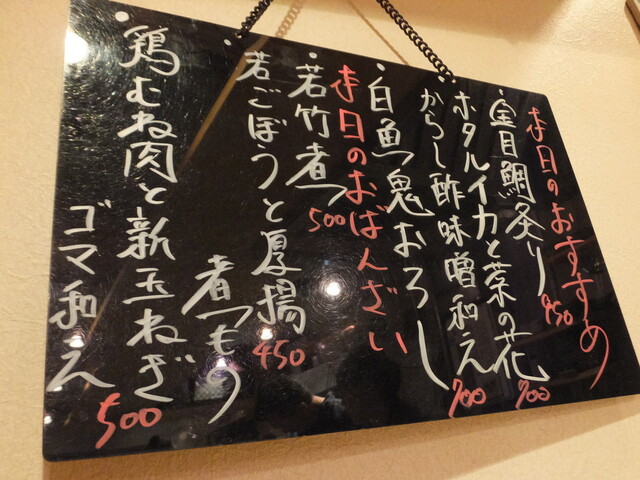 本日のおすすめ
・金目鯛炙り 850
・ホタルイカと菜の花
からし酢味噌和え 700
・白魚鬼おろし 700
本日のおばんざい
・若竹煮 500
・若ごぼうと厚揚
煮つもの 450
・鶏むね肉と新玉ねぎ
ゴマ和え 500